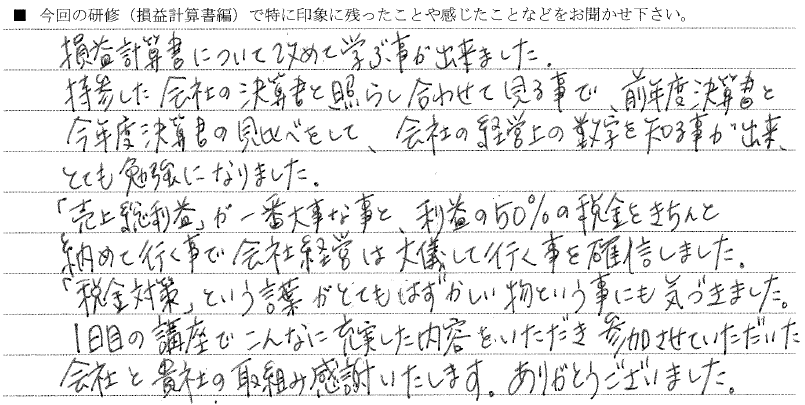 ■ 今回の研修（損益計算書編）で特に印象に残ったことや感じたことなどをお聞かせ下さい。
損益計算書について改めて学ぶ事が出来ました。
持参した会社の決算書と照らし合わせて見る事で、前年度決算書と
今年度決算書の見比べをして、会社の経営上の数字を知る事が出来、
とても勉強になりました。
「売上総利益」が一番大事な事と、利益の50%の税金をきちんと
納めて行く事で会社経営は大儀して行く事を確信しました。
「税金対策」という言葉がとてもはずかしい物という事にも気づきました。
1日目の講座でこんなに充実した内容をいただき参加させていただいた
会社と貴社の取組み感謝いたします。ありがとうございました。